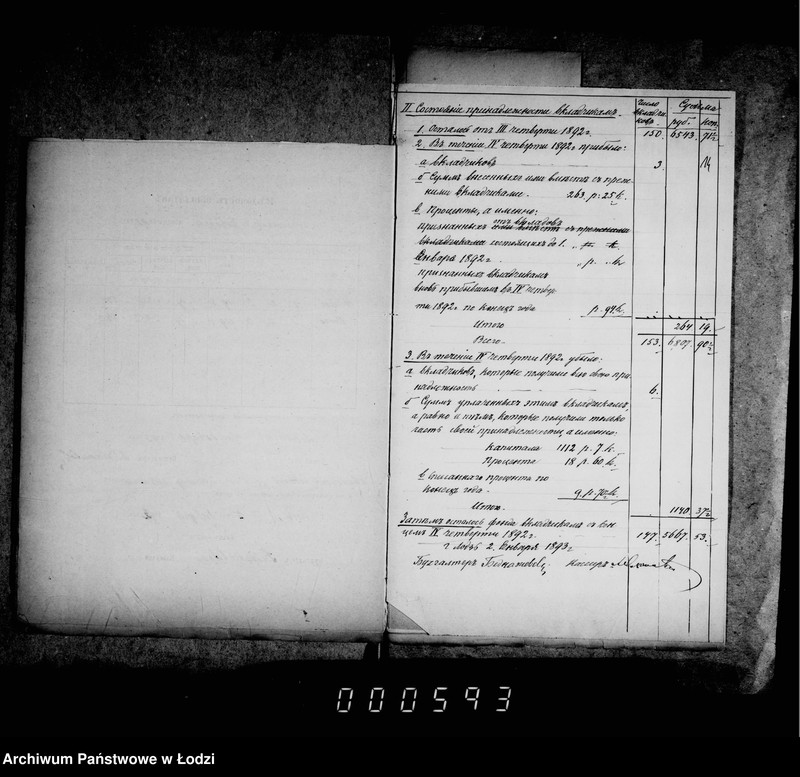 Число вкладчиковъ. Сумма
руб. коп.
II. Состояніе принадлежности вкладчикамъ.
1. Осталось отъ III четверти 1892 г. 150. 6543. 71½
2. Въ теченіи IV четверти 1892 г. прибыло:
а вкладчиковъ 3.
б Суммъ внесенныхъ ими вмѣстѣ съ преж-
ними вкладчиками. 263. р. 25 к.
в. Проценты, а именно:
отъ вкладовъ
признанныхъ
вкладчиками состоящихъ до 1.
Января 1892 г. „ р. „ к.
признанныхъ вкладчикамъ
вновь прибывшимъ въ IV четвер
ти 1892 г. по конецъ года р. 94 к.
Итого 264 19.
Всего. 153. 6807. 90½
3. Въ теченіи IV четверти 1892 г. убыло:
а вкладчиковъ, которые получили всю свою при
надлежность 6.
б Суммъ уплаченныхъ этимъ вкладчикамъ,
а равно и тѣмъ, которые получили только
часть своей принадлежности, а именно:
Капиталъ 1112 р. 7 к.
Проценты 18 р. 60 к.
в Списанаго процента по
конецъ года. 9 р. 70½ к.
Итого. 1140 37½
Затѣмъ осталось фонда вкладчикамъ съ кон
цемъ IV четверти 1892 г. 147. 5667. 53.
г. Лодзь 2. Января 1893 г.
Бухгалтеръ Кассиръ
000593
Archiwum Państwowe w Łodzi